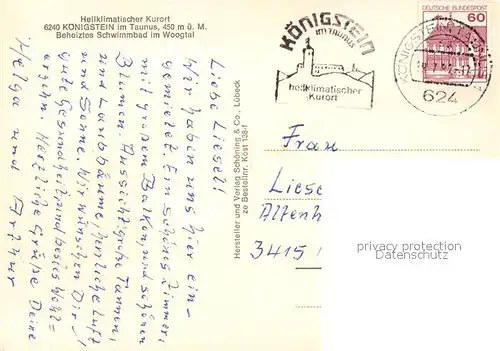 Heilklimatischer Kurort
6240 KÖNIGSTEIN im Taunus, 450 m ü. M.
Beheiztes Schwimmbad im Woogtal
Liebe Liesel!
Wir haben uns hier ein-
gemietet. Ein schönes Zimmer,
mit großem Balkon, und schönen
Blumen. Aussicht große Tannen,
und Laubbäume, herrliche Luft
und Sonne. Wir wünschen Dir
gute Gesundheit und bestes Wohl=
ergehn. Herzliche Grüße Deine
Helga und Arthur
Hersteller und Verlag Schöning & Co., Lübeck
zo Bestellnr. Köst 138-f
KÖNIGSTEIN
IM TAUNUS
heilklimatischer
Kurort
KÖNIGSTEIN, TAUNUS
624
DEUTSCHE BUNDESPOST
60
Frau
Liese
Altenh
3415
privacy protection
Datenschutz